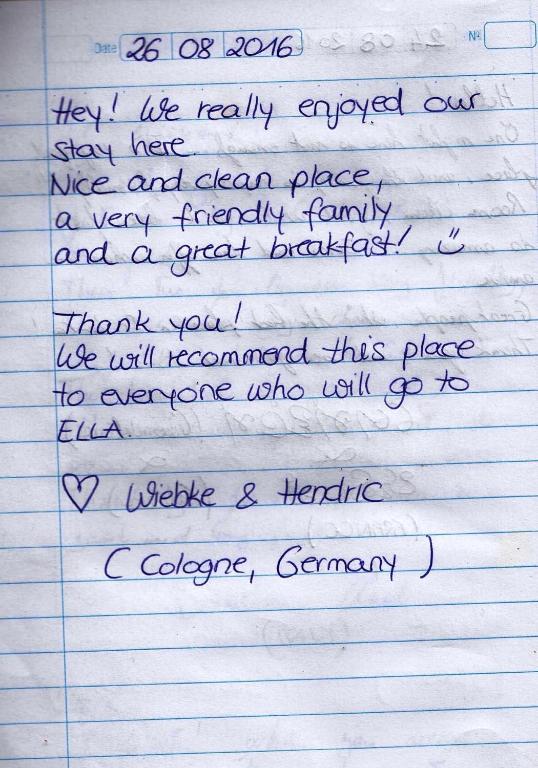 Date 26 08 2016 Nº
Hey! We really enjoyed our
stay here.
Nice and clean place,
a very friendly family
and a great breakfast!
Thank you!
We will recommend this place
to everyone who will go to
ELLA.
♡ Wiebke & Hendric
( Cologne, Germany )